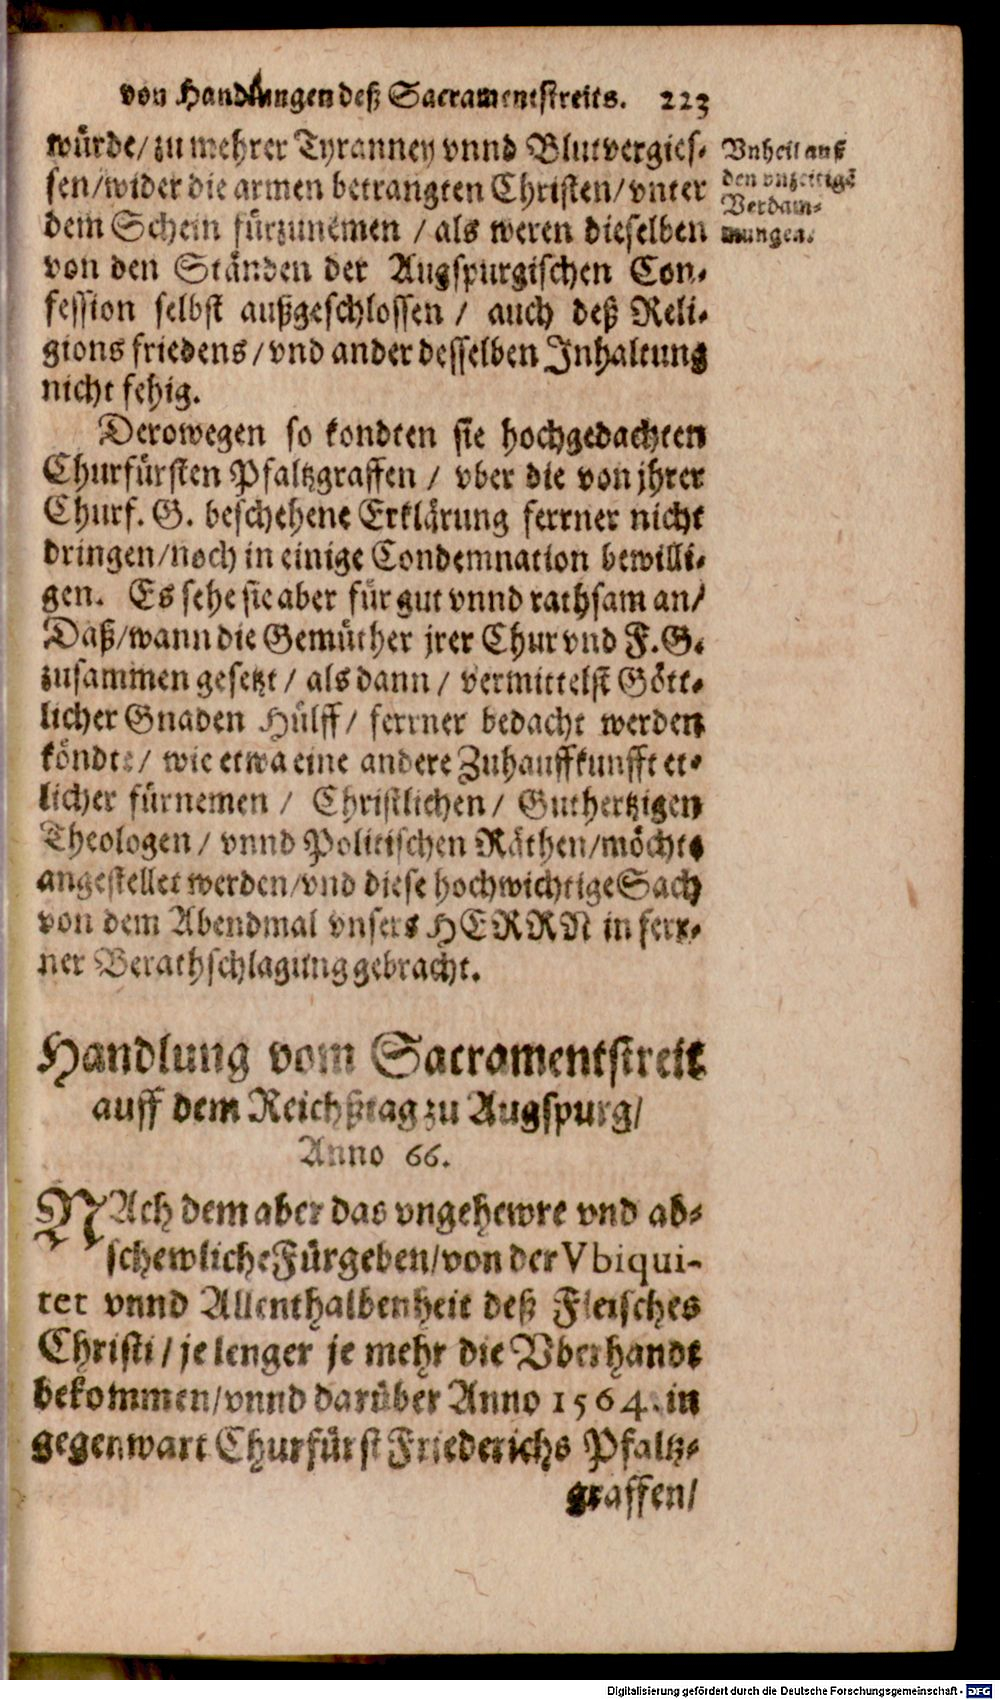 von Handlungen deß Sacramentstreits. 223
würde/ zu mehrer Tyranney vnnd Blutvergies-
sen/ wider die armen betrangten Christen/ vnter
dem Schein fürzunemen / als weren dieselben
von den Ständen der Augspurgischen Con-
fession selbst außgeschlossen / auch deß Reli-
gions friedens/ vnd ander desselben Inhaltung
nicht fehig.
Vnheil auß
den vnzeitigē
Verdam-
mungen.
Derowegen so kondten sie hochgedachten
Churfürsten Pfaltzgraffen / vber die von jhrer
Churf. G. beschehene Erklärung ferrner nicht
dringen/ noch in einige Condemnation bewilli-
gen. Es sehe sie aber für gut vnnd rathsam an/
Daß/ wann die Gemüther jrer Chur vnd F. G.
zusammen gesetzt / als dann / vermittelst Gött-
licher Gnaden Hülff/ ferrner bedacht werden
köndte/ wie etwa eine andere Zuhauffkunfft et-
licher fürnemen / Christlichen / Guthertzigen
Theologen / vnnd Politischen Räthen/ möchte
angestellet werden/ vnd diese hochwichtige Sach
von dem Abendmal vnsers HERRN in ferr-
ner Berathschlagung gebracht.
Handlung vom Sacramentstreit
auff dem Reichßtag zu Augspurg/
Anno 66.
NAch dem aber das vngehewre vnd ab-
schewliche Fürgeben/ von der Vbiqui-
tet vnnd Allenthalbenheit deß Fleisches
Christi / je lenger je mehr die Vberhandt
bekommen/ vnnd darüber Anno 1564. in
gegenwart Churfürst Friederichs Pfaltz-
graffen/
Digitalisierung gefördert durch die Deutsche Forschungsgemeinschaft - DFG